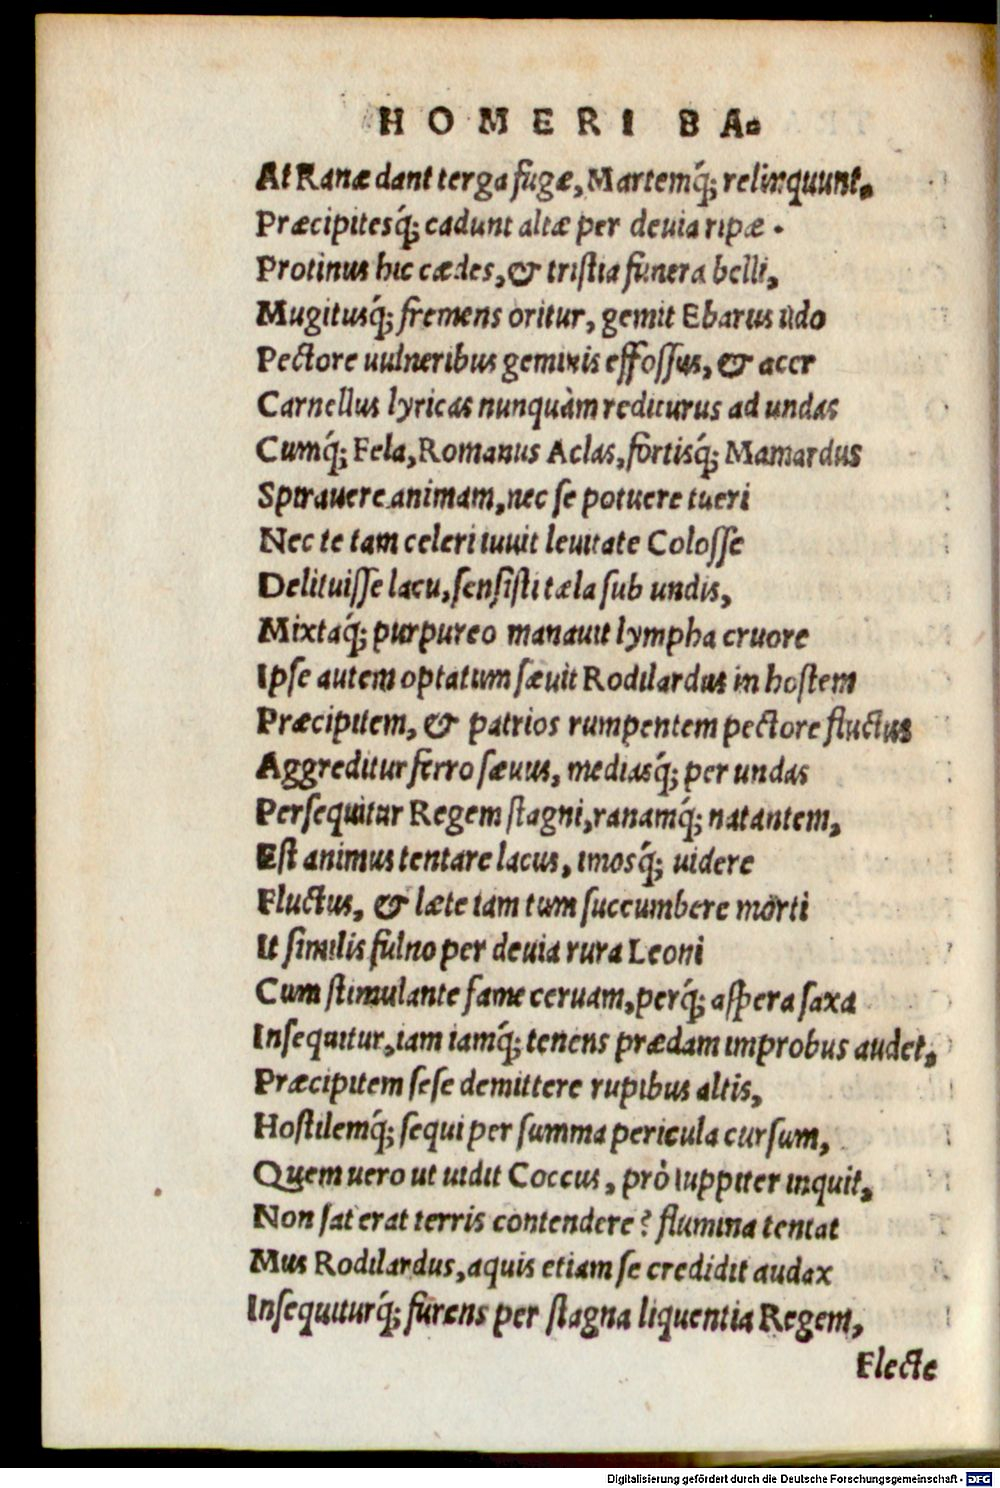 HOMERI BA-
At Ranæ dant terga fugæ, Martemq́; relinquunt,
Præcipitesq́; cadunt altæ per deuia ripæ .
Protinus hic cædes, & tristia funera belli,
Mugitusq́; fremens oritur, gemit Ebarus udo
Pectore uulneribus geminis effossus, & acer
Carnellus lyricas nunquàm rediturus ad undas
Cumq́; Fela, Romanus Aclas, fortisq́; Mamardus
Spirauere animam, nec se potuere tueri
Nec te tam celeri iuuit leuitate Colosse
Delituisse lacu, sensisti tæla sub undis,
Mixtaq́; purpureo manauit lympha cruore
Ipse autem optatum sæuit Rodilardus in hostem
Præcipitem, & patrios rumpentem pectore fluctus
Aggreditur ferro sæuus, mediasq́; per undas
Persequitur Regem stagni, ranamq́; natantem,
Est animus tentare lacus, imosq́; uidere
Fluctus, & læte iam tum succumbere morti
Ut similis fuluo per deuia rura Leoni
Cum stimulante fame ceruam, perq́; aspera saxa
Insequitur, iam iamq́; tenens prædam improbus audet,
Præcipitem sese demittere rupibus altis,
Hostilemq́; sequi per summa pericula cursum,
Quem uero ut uidit Coccus, prò Iuppiter inquit,
Non sat erat terris contendere? flumina tentat
Mus Rodilardus, aquis etiam se credidit audax
Insequiturq́; furens per stagna liquentia Regem,
Electe
Digitalisierung gefördert durch die Deutsche Forschungsgemeinschaft - DFG